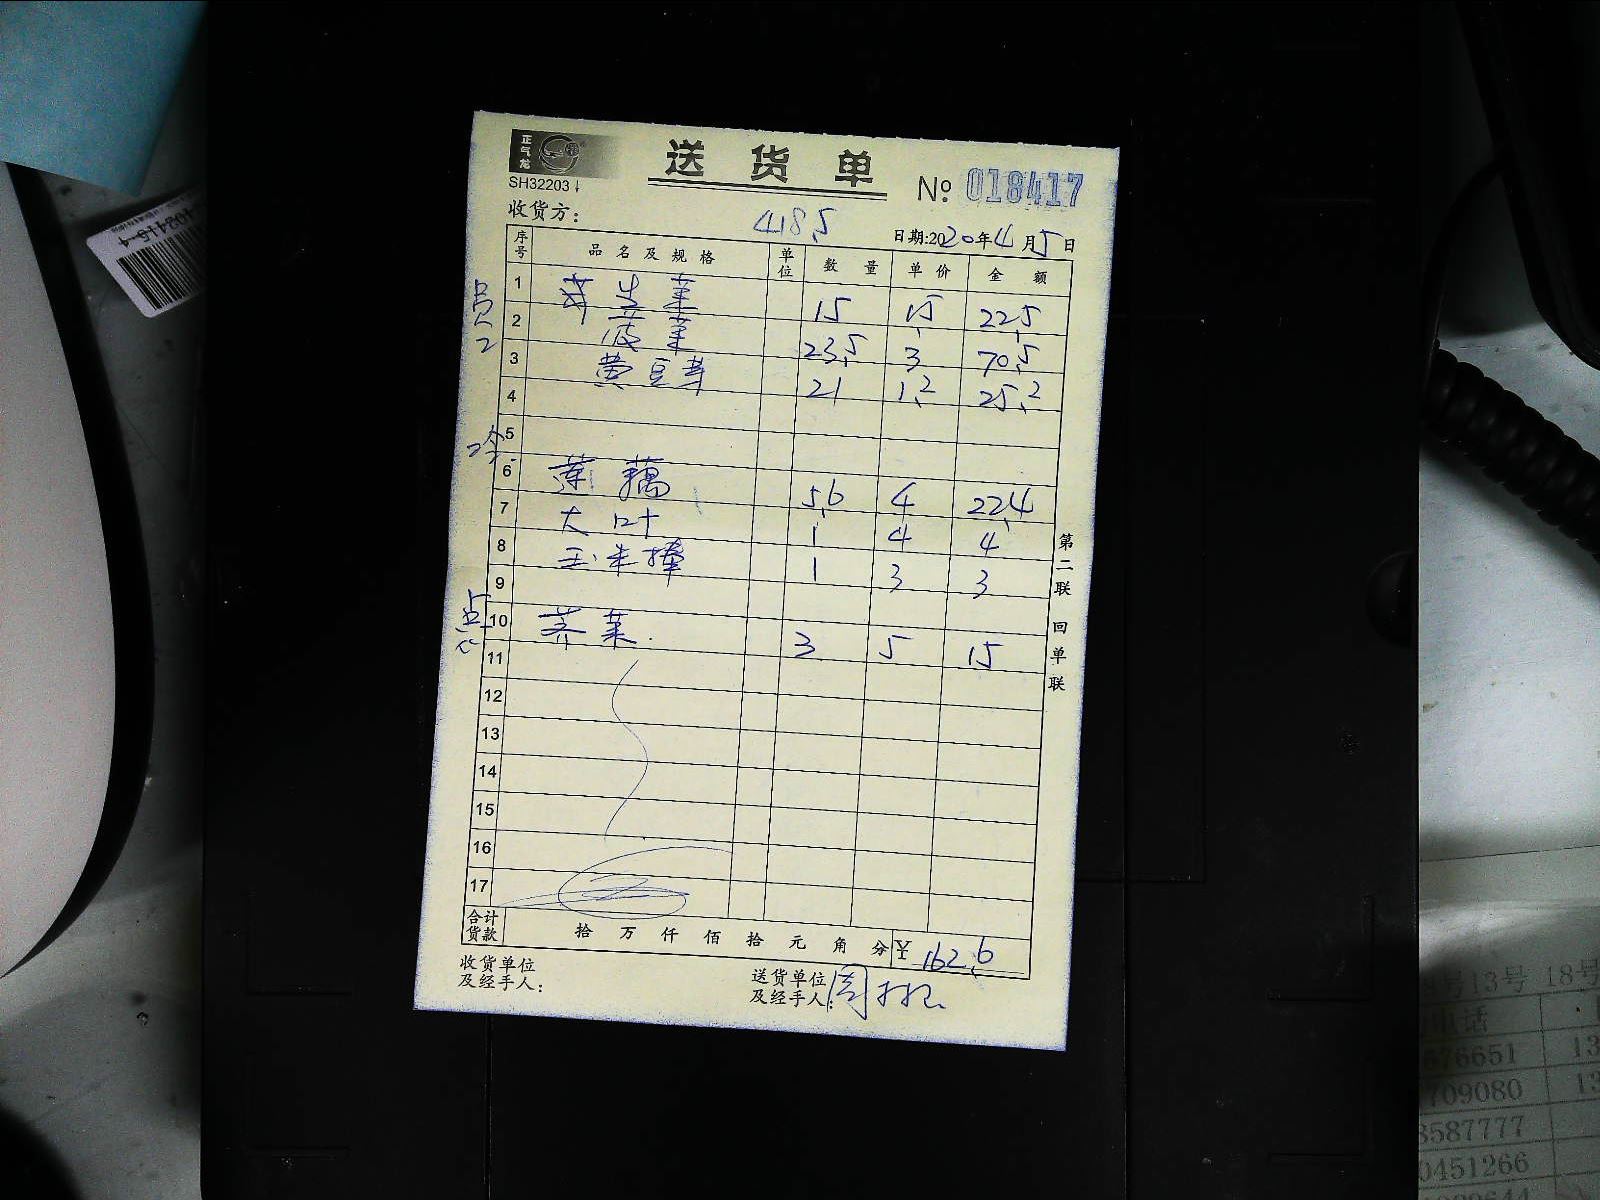 正气龙
SH32203
送货单
No. 018417
收货方:
418.5
日期:2020年4月5日
序号 品名及规格 单位 数量 单价 金额
1 生菜 15 1.5 22.5
2 菠菜 23.5 3 70.5
3 黄豆芽 21 1.2 25.2
4
5
6 藕 5.6 4 22.4
7 大叶 1 4 4
8 玉米棒 1 3 3
9
10 荠菜 3 5 15
11
12
13
14
15
16
17
员工
冷
点心
第二联 回单联
合计货款 拾 万 仟 佰 拾 元 角 分 ¥ 162.6
收货单位及经手人:
送货单位及经手人: 周
8号13号 18号
电话
676651 13
709080 13
8587777
0451266